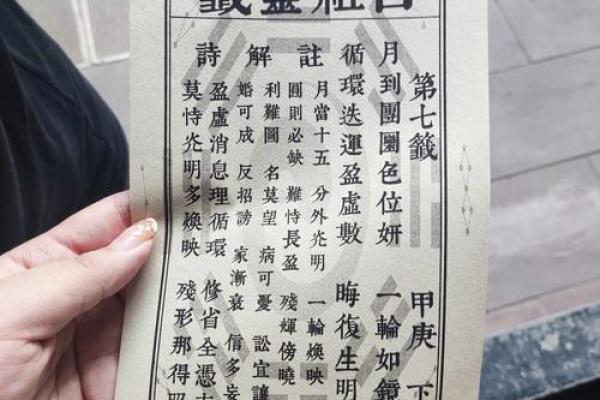 呂祖靈籤
第七籤 甲庚 下
月到團圞色位妍 一輪如鏡
循環迭運盈虛數 晦復生明
註解詩
月當十五 分外光明 一輪煥映
圓則必缺 難恃長盈 殘輝傍曉
利難圖 名莫望 病可憂 訟宜讓
婚可成 反招謗 家漸衰 信多妄
盈虛消息理循環 修省全憑
莫恃光明多煥映 殘形那得照